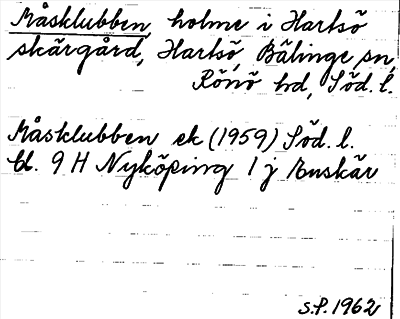 Måsklubben, holme i Hartsö
skärgård, Hartsö, Bälinge sn,
Rönö hd, Söd. l.
Måsklubben ek (1959) Söd. l.
bl. 9 H Nyköping 1 j Enskär
S.P. 1962